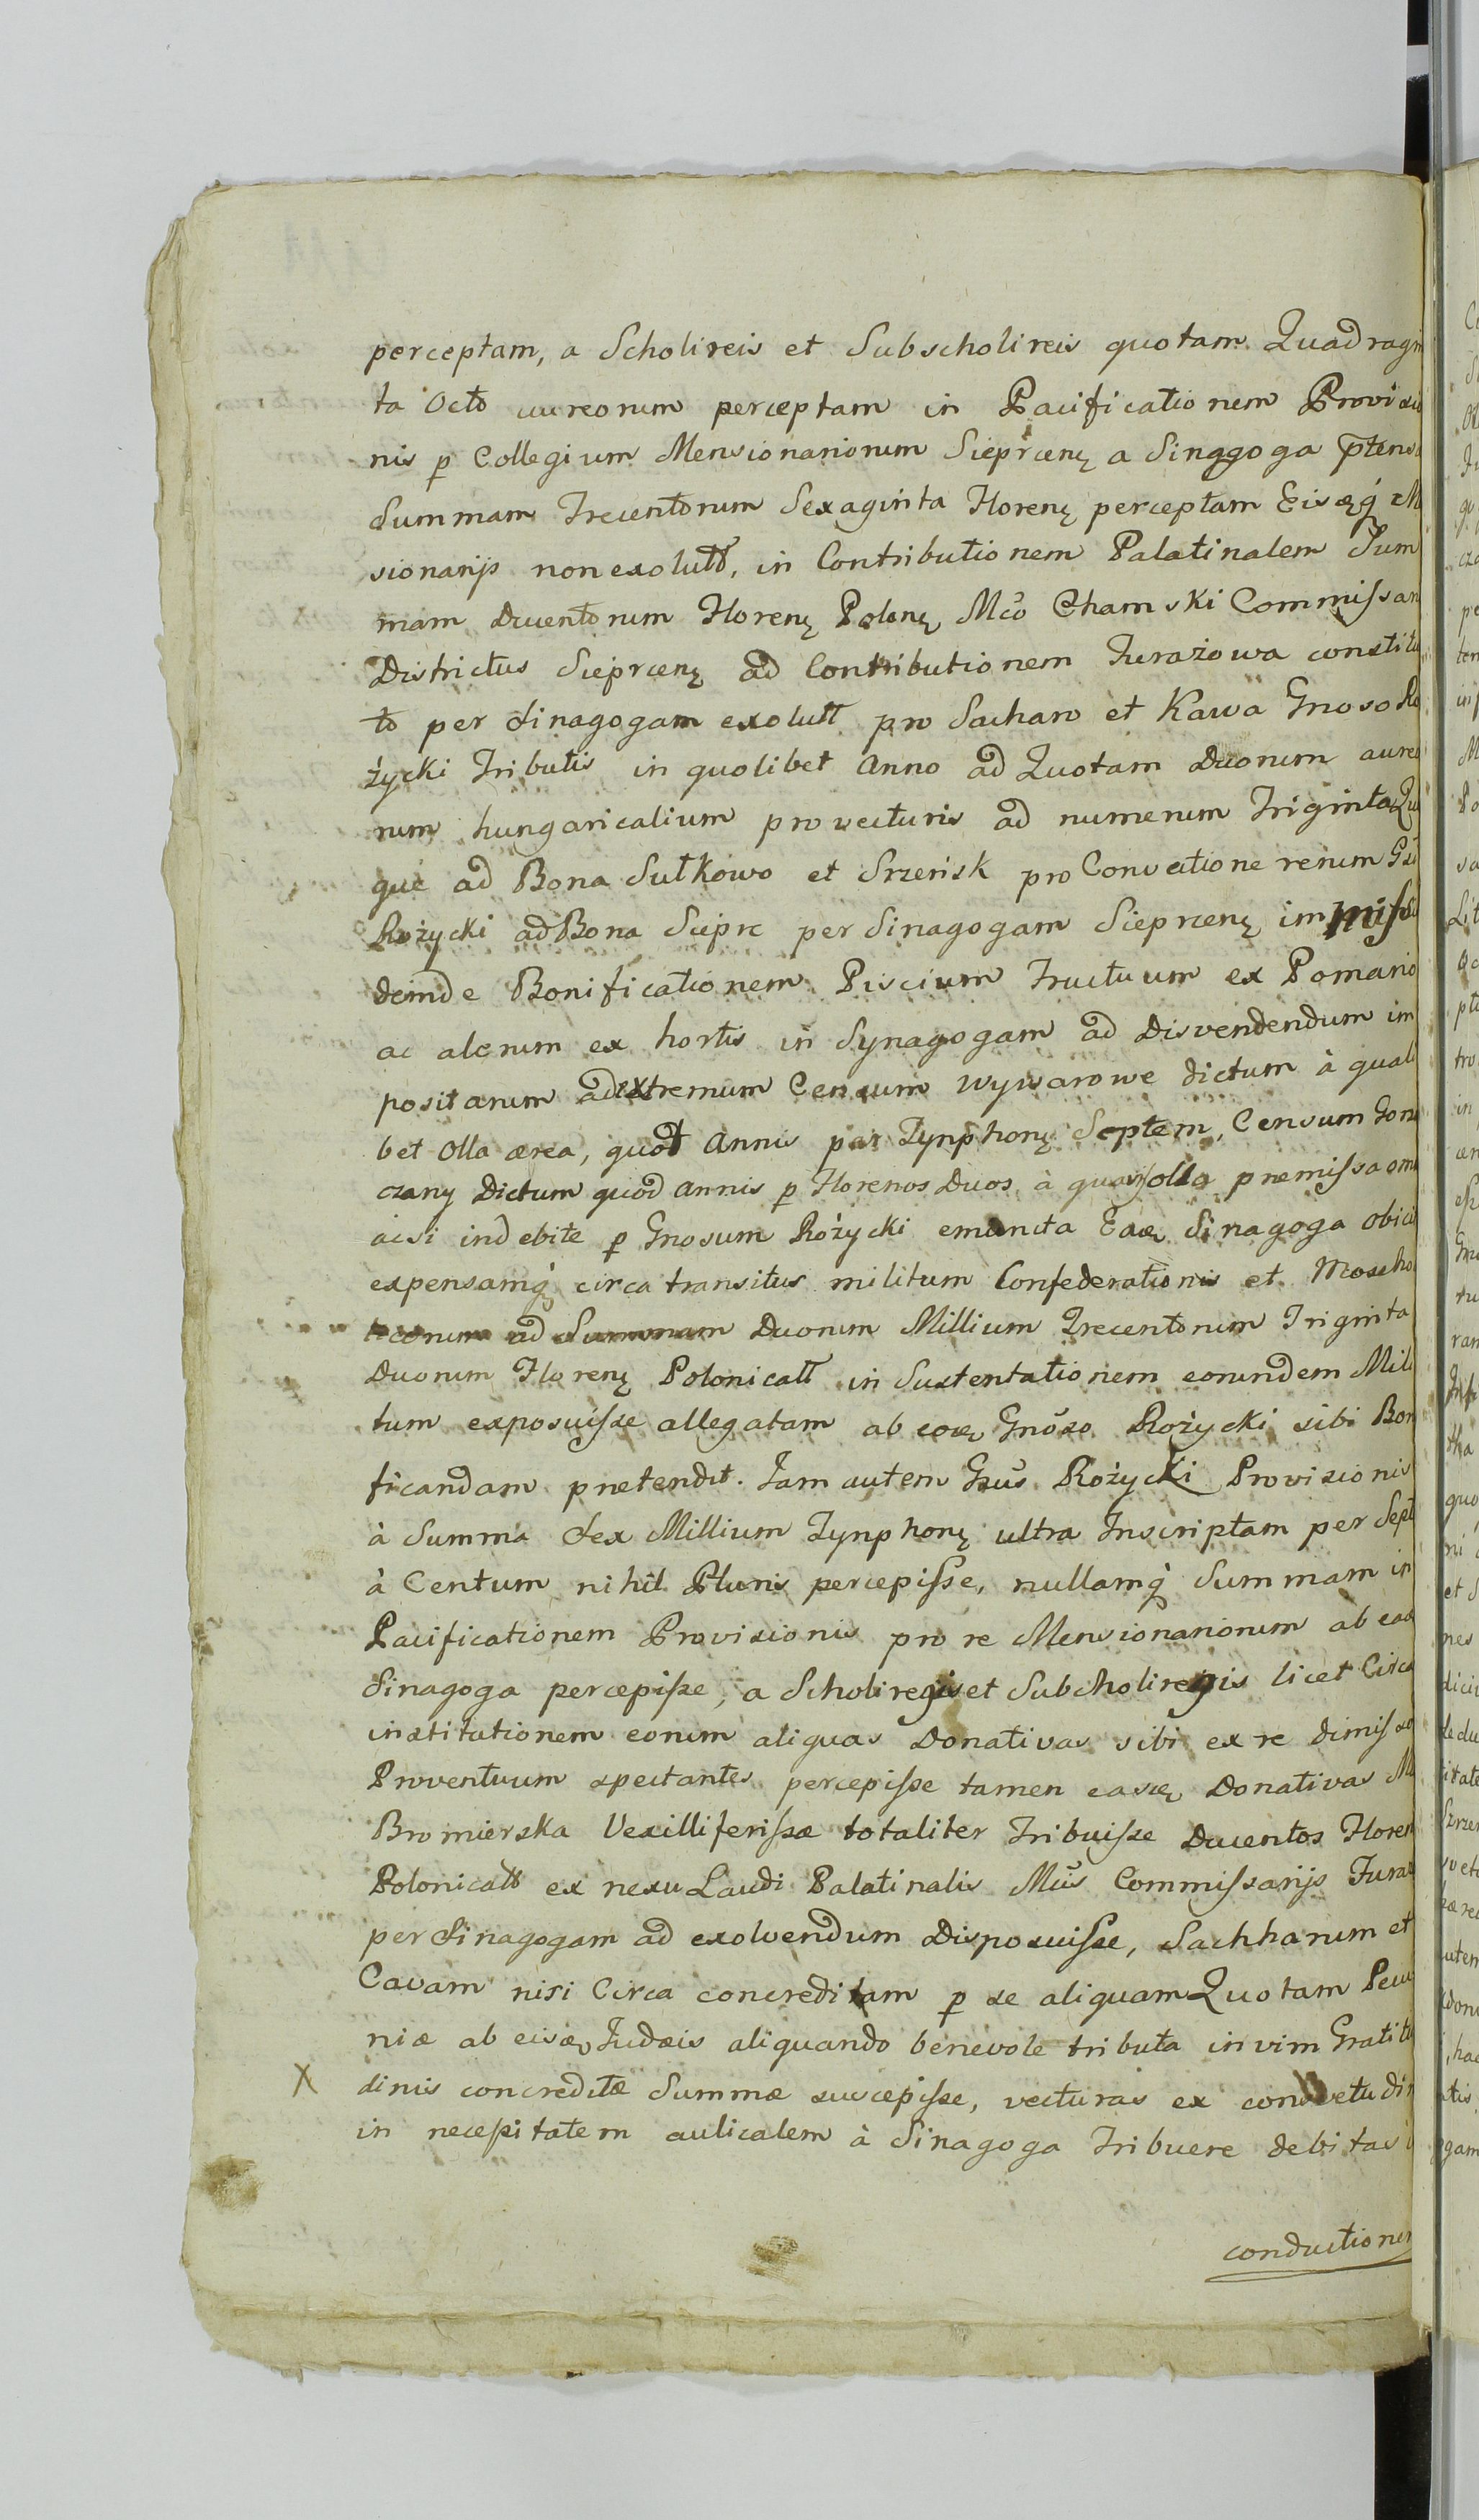 perceptam, a Scholireis et Subscholireis quotam Quadragin
ta Octo aureorum perceptam in Pacificationem Provisio
nis p Collegium Mensionariorum Sieprcenę a Sinagoga ptens
Summam Trecentorum Sexaginta Florenę perceptam Eisęq́ M
sionarijs non exolutt, in Contributionem Palatinalem Sum
mam Ducentorum Florenę Polonę Mco Chamski Commissar
Districtus Sieprcenę ad Contributionem Furażowa constitu
to per Sinagogam exolutt pro Sacharo et Kawa Gnoso Ro
życki Tributis in quolibet Anno ad Quotam Duorum aureo
rum hungaricalium pro vecturis ad numerum Triginta Qu
que ad Bona Sułkowo et Srzeńsk pro Convectione rerum Gsi
Rożycki ad Bona Sieprc per Sinagogam Sieprcenę immissi
deinde Bonificationem Piscium Fructuum ex Pomario
ac alerum ex hortis in Synagogam ad Disvendendum im
positarum ad extremum Censum Wywarowe dictum à quali
bet Olla ærea, quot Annis par Tynphonę Septem, Censum Gorz
czany Dictum quod annis p Florenos Duos à quavis olla premissa om
acsi indebite p Gnosum Różycki emuncta Eaæ Sinagoga obici
expensamq́ circa transitus militum Confederationis et Moscho
ticorum ad Summam Duorum Millium Trecentorum Triginta
Duorum Florenę Polonicatt in Sustentationem eorundem Mili
tum exposuisse allegatam ab eoę Gnoso Rożycki sibi Bon
ficandam pretendit. Jam autem Gsus Rożycki Provisionis
à Summa Sex Millium Tynphonę ultra Inscriptam per Sept
à Centum nihil Pluris percepisse, nullamq́ Summam in
Pacificationem Provisionis pro re Mensionariorum ab ead
Sinagoga percepisse, a Scholiregis et Subscholiregis licet Circa
institutionem eorum aliquas Donativas sibi ex re dimisso
Proventuum spectantes percepisse tamen easę Donativas M
Bromierska Vexilliferissæ totaliter Tribuisse Ducentos Floren
Polonicatt ex nexu Laudi Palatinalis Mcis Commissarijs Furaz
per Sinagogam ad exolvendum Disposuisse, Sachharum et
Cavam nisi Circa concreditam p se aliquam Quotam Pecu
niæ ab eisę Judæis aliquando benevole tributa in vim Gratitu
X dinis concreditæ Summæ suscepisse, vecturas ex consvetudin
in necessitatem aulicalem à Sinagoga Tribuere debitas
conductionem